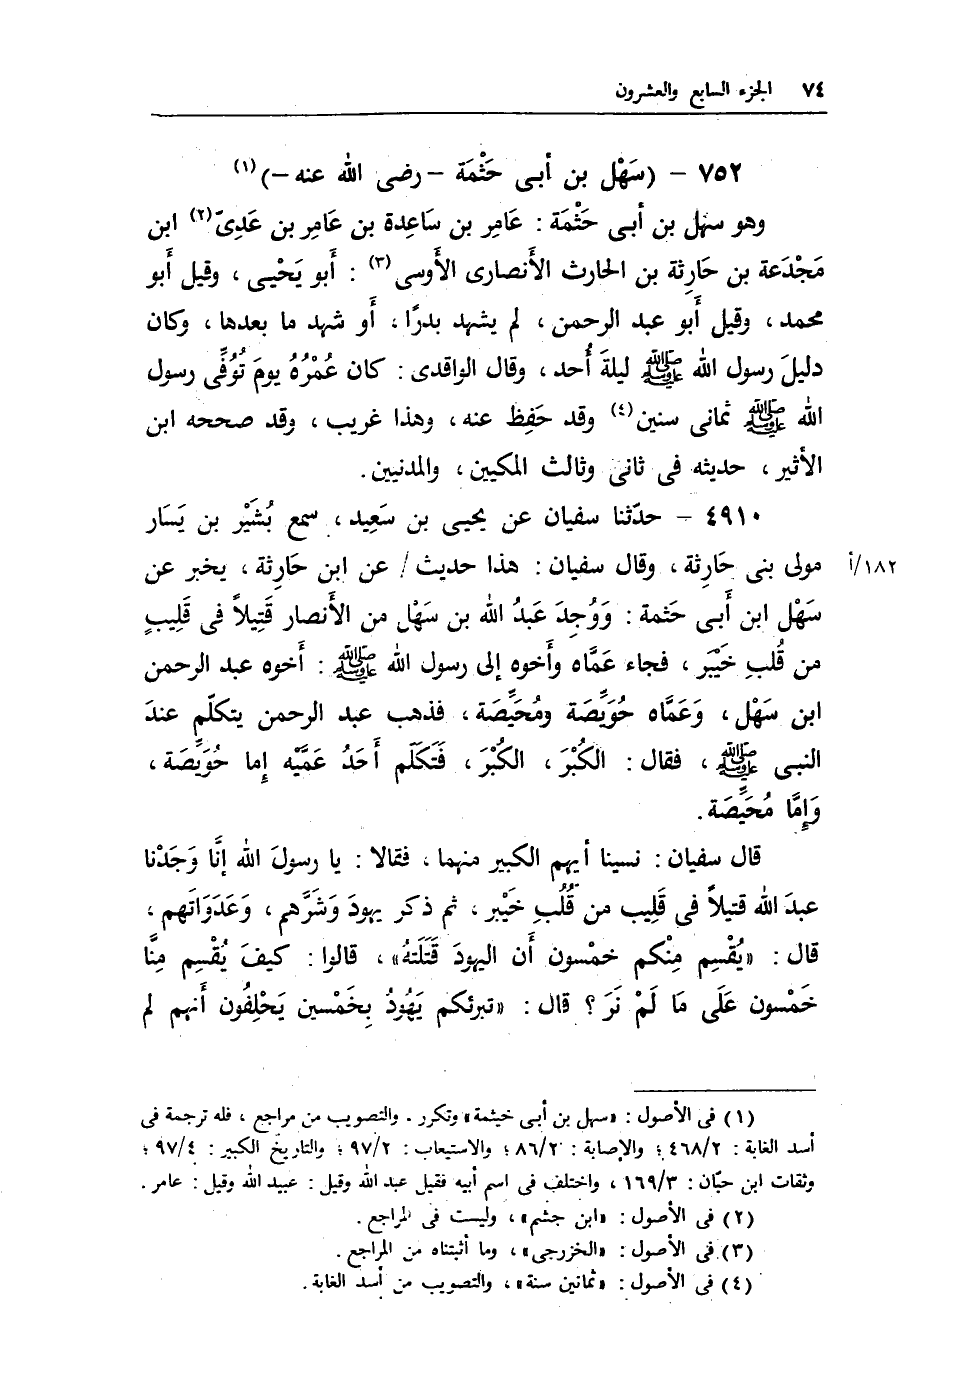 ٧٤ الجزء السابع والعشرون
٧٥٢ – (سَهْل بن أبى حَثْمَة – رضى الله عنه –)(١)
وهو سهل بن أبى حَثْمَة : عَامِر بن سَاعِدة بن عَامِر بن عَدِىّ(٢) ابن
مَجْدَعة بن حَارِثة بن الحارث الأنصارى الأَوسى(٣) : أَبو يَحْيى ، وقيل أَبو
محمد ، وقيل أَبو عبد الرحمن ، لم يشهد بدرًا ، أَو شهد ما بعدها ، وكان
دليلَ رسول الله ﷺ ليلةَ أُحد ، وقال الواقدى : كان عُمْرُهُ يومَ تُوُفِّى رسول
الله ﷺ ثمانى سنين(٤) وقد حَفِظ عنه ، وهذا غريب ، وقد صححه ابن
الأثير ، حديثه فى ثانى وثالث المكيين ، والمدنيين .
٤٩١٠ – حدّثنا سفيان عن يحيى بن سَعِيد ، سمع بُشَيْر بن يَسَار
مولى بنى حَارِثة ، وقال سفيان : هذا حديث / عن ابن حَارِثة ، يخبر عن ١٨٢/أ
سَهْل ابن أَبى حَثمة : وَوُجِدَ عَبدُ الله بن سَهْل من الأنصار قَتِيلاً فى قَلِيبٍ
من قُلبِ خَيْبَر ، فجاء عَمَّاه وأَخوه إلى رسول الله ﷺ : أَخوه عبد الرحمن
ابن سَهْل ، وَعَمَّاه حُوَيِّصَة ومُحَيِّصَة ، فذهب عبد الرحمن يتكلّم عندَ
النبى ﷺ ، فقال : الكُبْرَ ، الكُبْرَ ، فَتَكَلَّم أَحَدُ عَمَّيْه إما حُوَيِّصَة ،
وَإِمَّا مُحَيِّصَة .
قال سفيان : نسينا أيهم الكبير منهما ، فقالا : يا رسولَ الله إنَّا وَجَدْنا
عبدَ الله قتيلاً فى قَلِيب من قُلُبِ خَيْبر ، ثم ذكر يهودَ وَشَرَّهم ، وَعَدَوَاتَهم ،
قال : «يُقْسِم مِنْكم خمْسون أن اليهودَ قَتَلَتهُ» ، قالوا : كيفَ يُقْسِم مِنَّا
خَمْسون عَلَى مَا لَمْ نَرَ ؟ قال : «تبرئكم يَهُودُ بِخَمْسين يَحْلِفُون أَنهم لم
(١) فى الأصول : «سهل بن أبى خيثمة» وتكرر . والتصويب من مراجع ، فله ترجمة فى
أسد الغابة : ٤٦٨/٢ ؛ والإصابة : ٨٦/٢ ؛ والاستيعاب : ٩٧/٢ ؛ والتاريخ الكبير : ٩٧/٤ ؛
وثقات ابن حبّان : ١٦٩/٣ ، واختلف فى اسم أبيه فقيل عبد الله وقيل : عبيد الله وقيل : عامر .
(٢) فى الأصول : «ابن جشم» ، وليست فى المراجع .
(٣) فى الأصول : «الخزرجى» ، وما أثبتناه من المراجع .
(٤) فى الأصول : «ثمانين سنة» ، والتصويب من أسد الغابة .